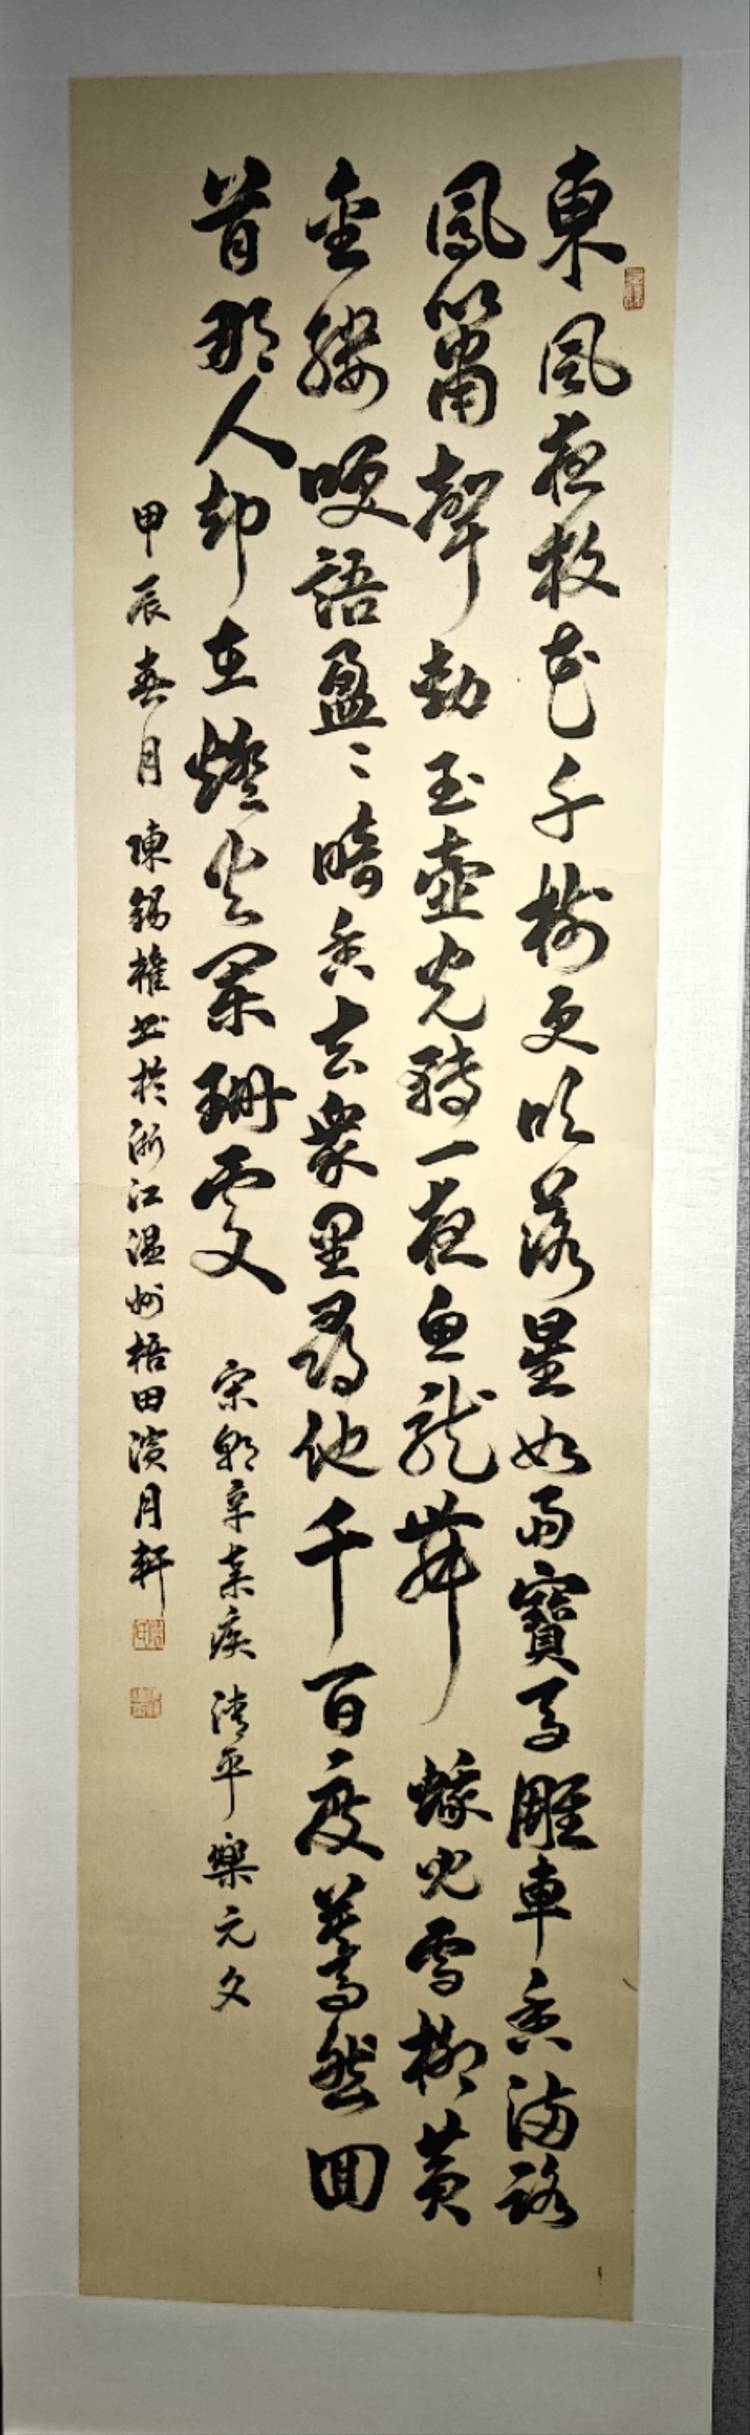 東風夜放花千樹更吹落星如雨寶馬雕車香滿路
鳳簫聲動玉壺光轉一夜魚龍舞 蛾兒雪柳黃
金縷咲語盈〻暗香去衆里尋他千百度驀然囬
首那人却在燈火闌珊處 宋朝辛棄疾 清平樂元夕
甲辰春月 陳錫權書於浙江温州梧田濱月軒